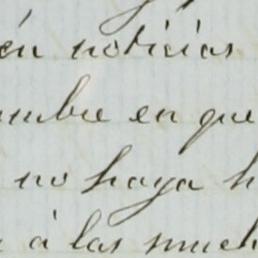 én noticias
umbre en que
no haya h
á las much